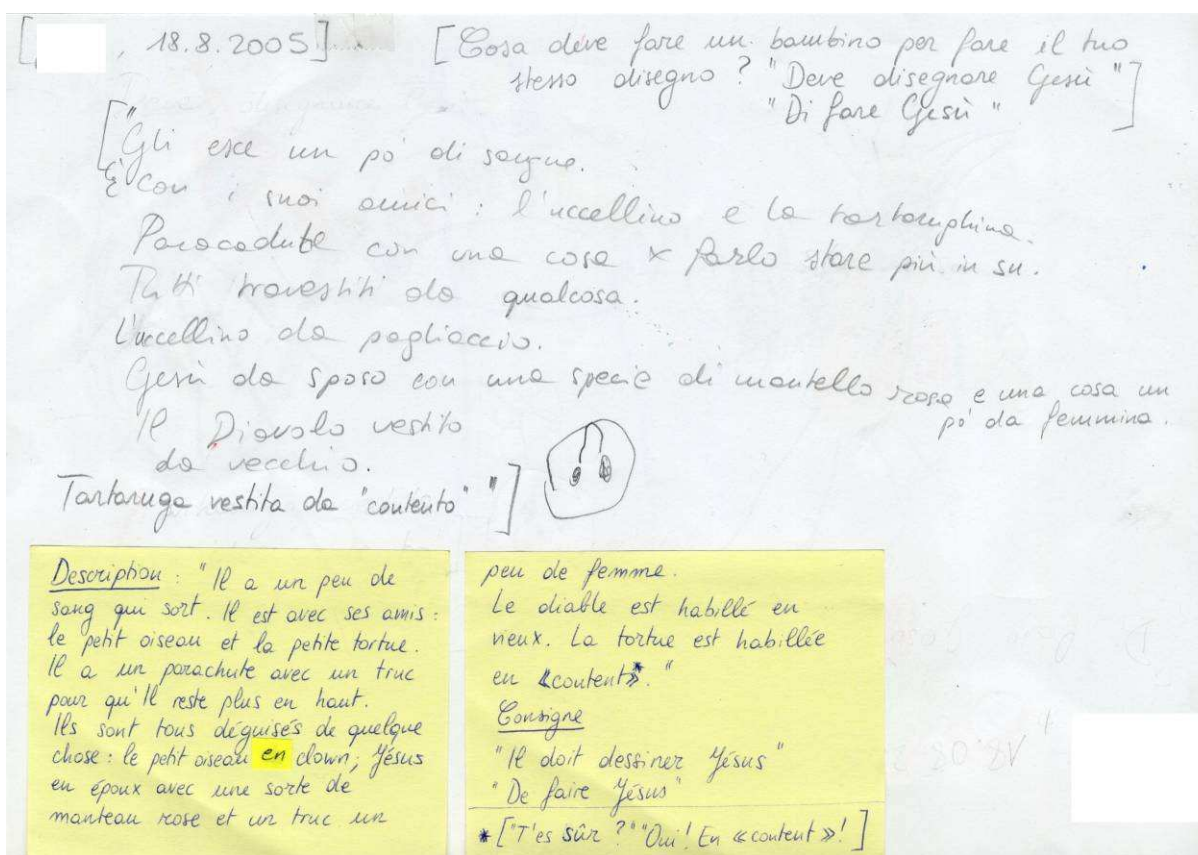 [ , 18.8.2005]
[Cosa deve fare un bambino per fare il tuo
stesso disegno? "Deve disegnare Gesù"
"Di fare Gesù"]
["Gli esce un pò di sangue.
È con i suoi amici: l'uccellino e la tartarughina.
Paracadute con una cosa x farlo stare più in su.
Tutti travestiti da qualcosa.
L'uccellino da pagliaccio.
Gesù da sposo con una specie di mantello rosa e una cosa un
pò da femmina.
Il Diavolo vestito
da vecchio.
Tartaruga vestita da "contento" "]
Description : "Il a un peu de
sang qui sort. Il est avec ses amis :
le petit oiseau et la petite tortue.
Il a un parachute avec un truc
pour qu'Il reste plus en haut.
Ils sont tous déguisés de quelque
chose : le petit oiseau en clown; Jésus
en époux avec une sorte de
manteau rose et un truc un
peu de femme.
Le diable est habillé en
vieux. La tortue est habillée
en «content»*."
Consigne
"Il doit dessiner Jésus"
"De faire Jésus"
*["T'es sûr ?" "Oui! En «content»!]